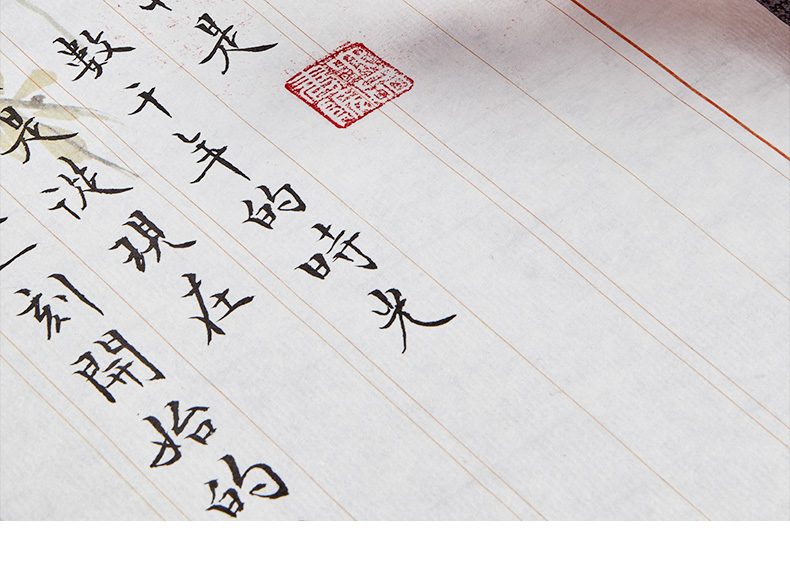 是
數十年的時光
是從現在
刻開始的